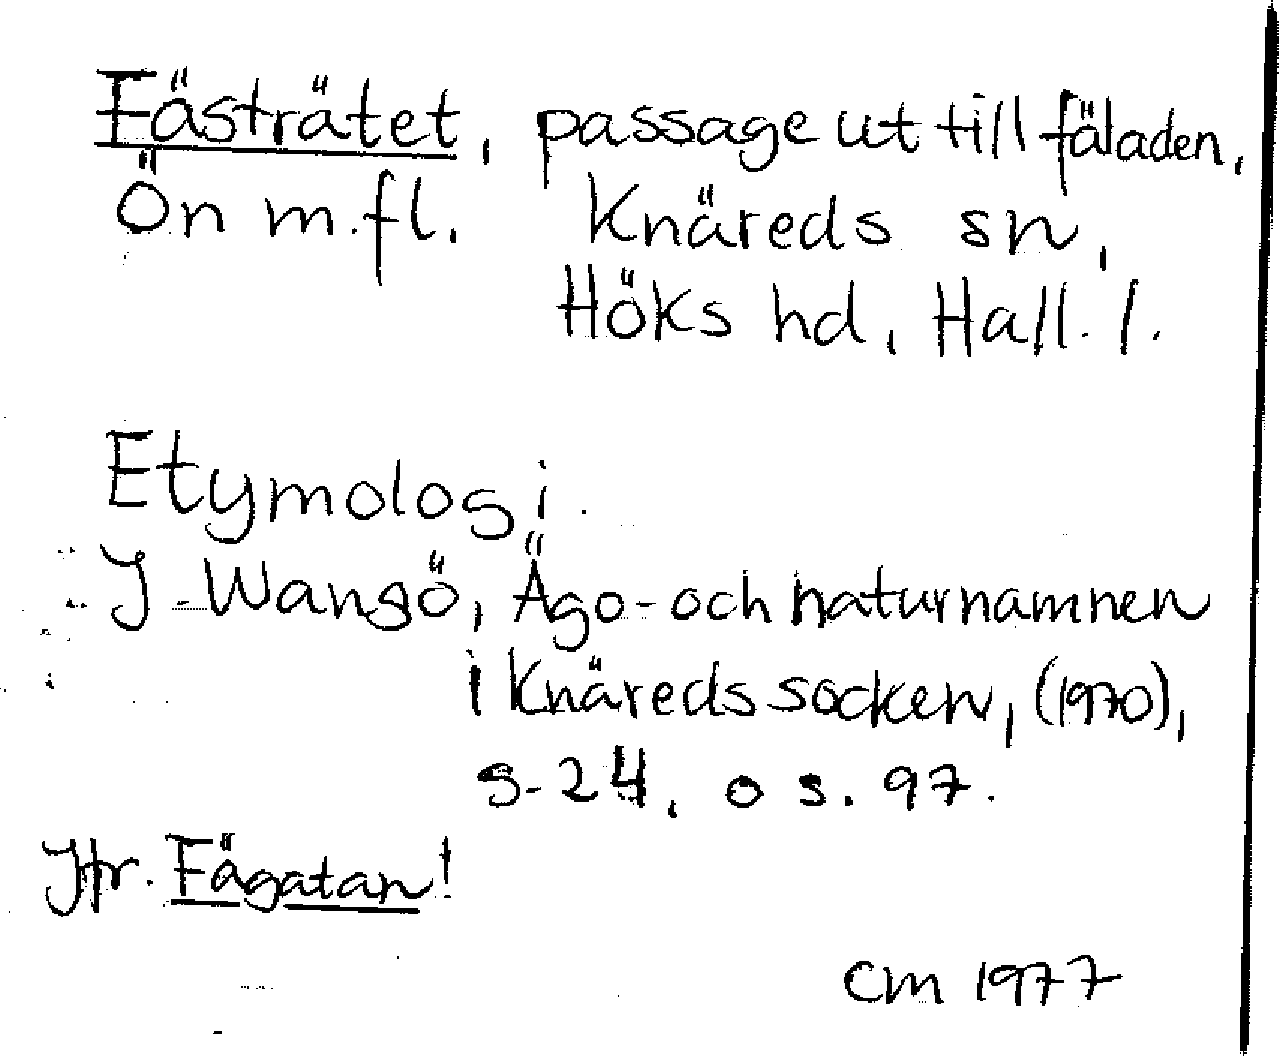 Fästrätet, passage ut till fäladen,
Ön m.fl. Knäreds sn,
Höks hd, Hall. l.
Etymologi.
J. Wangö, Ägo- och naturnamnen
i Knäreds socken, (1970),
s. 24, o s. 97.
Jfr. Fägatan!
CM 1977